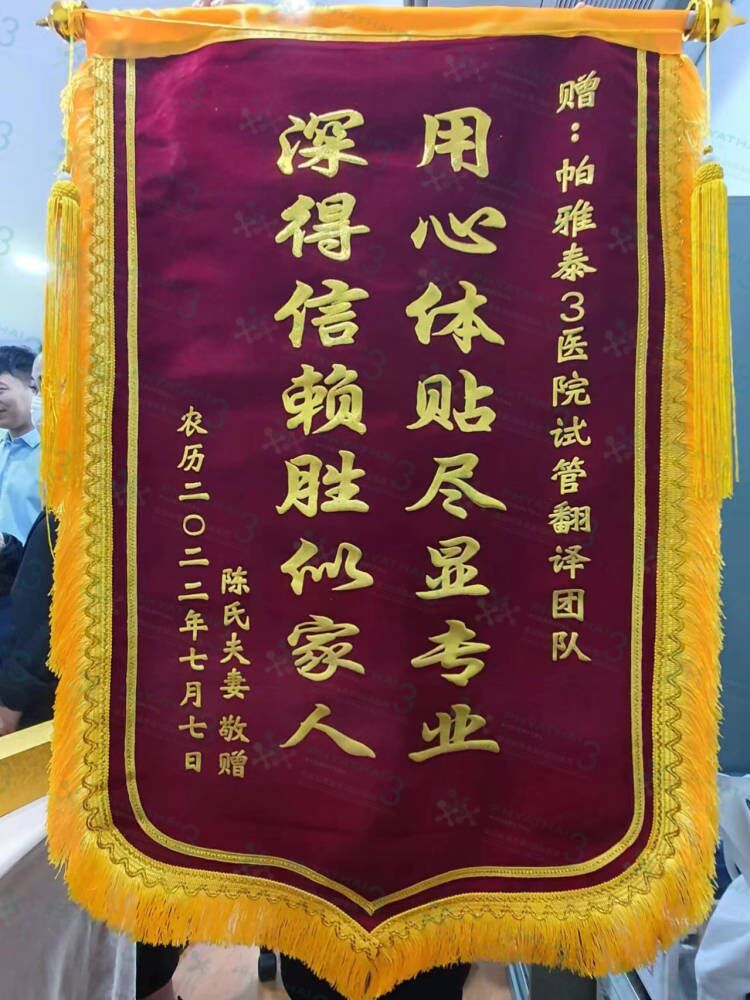 赠：帕雅泰3医院试管翻译团队
用心体贴尽显专业
深得信赖胜似家人
陈氏夫妻 敬赠
农历二〇二二年七月七日